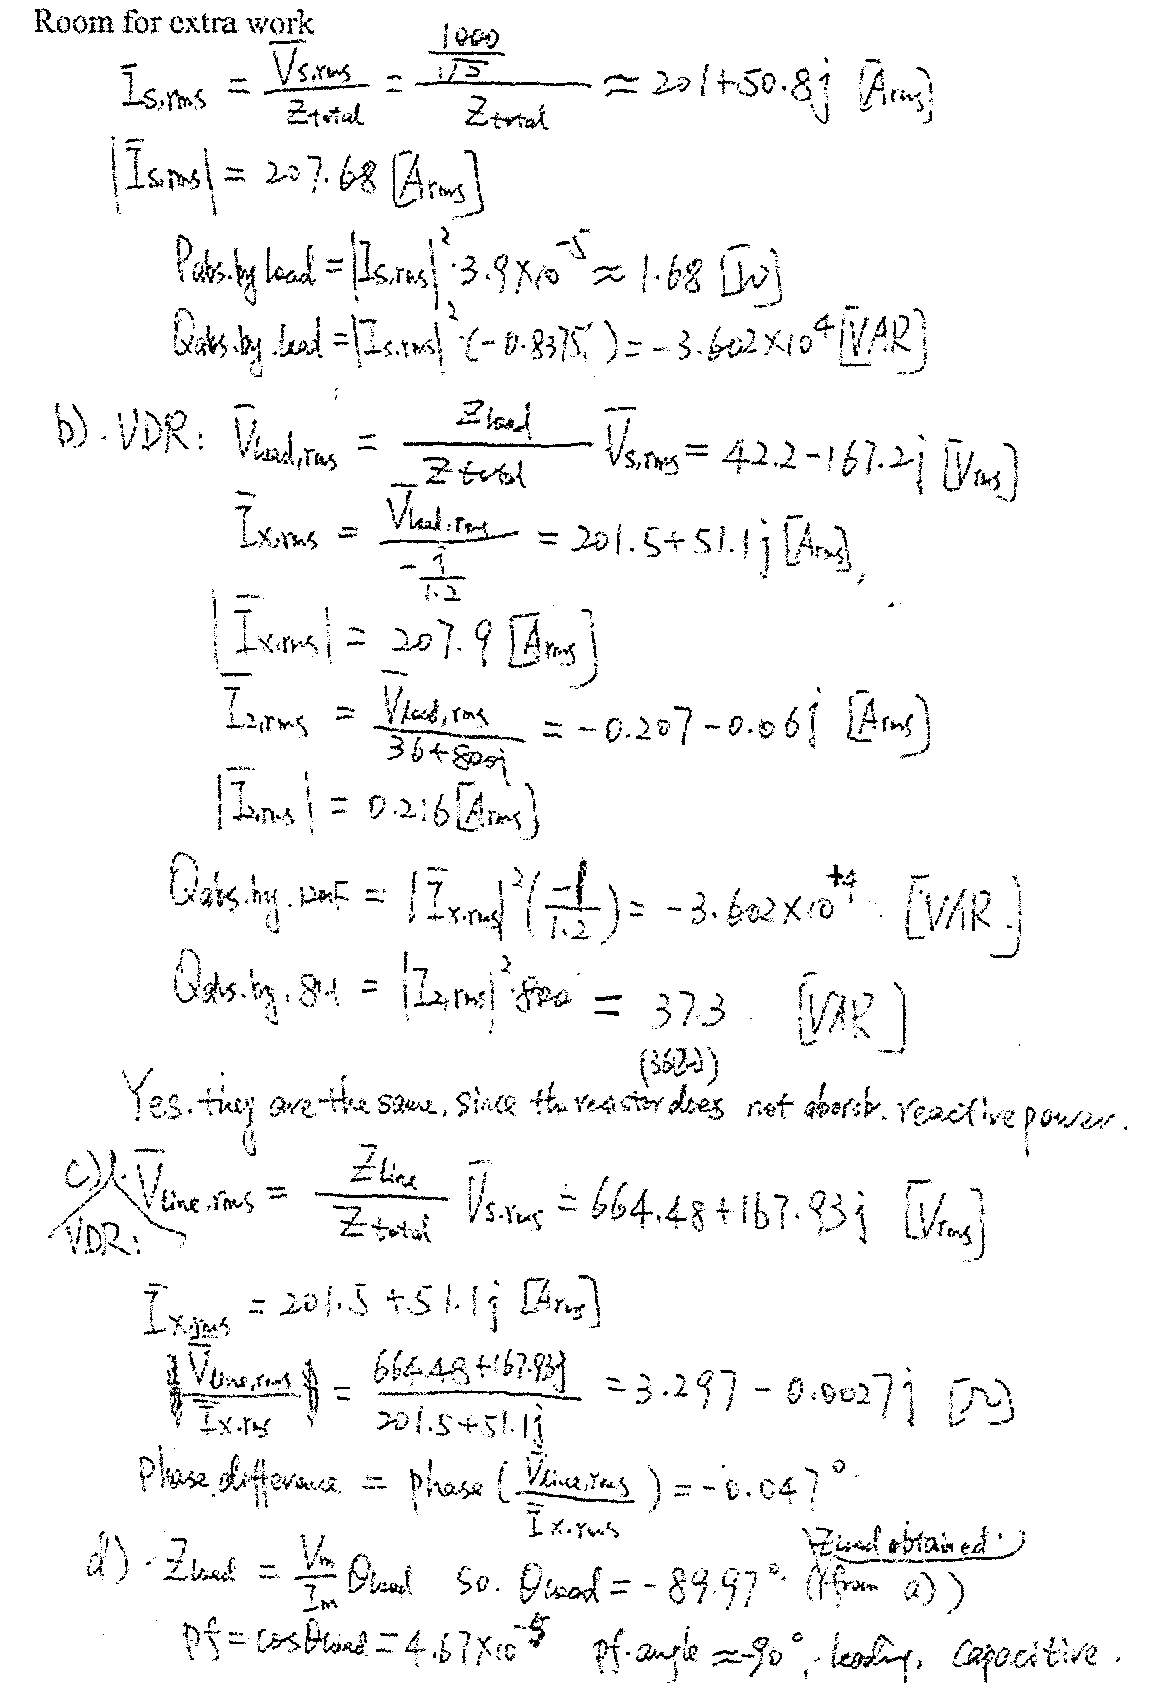 Room for extra work
Īs,rms = V̄s,rms / Ztotal = (1000/√2) / Ztotal ≈ 201+50.8j [Arms]
|Īs,rms| = 207.68 [Arms]
Pabs.by load = |Is,rms|²·3.9×10⁻⁵ ≈ 1.68 [W]
Qabs.by.load = |Is,rms|²·(-0.8375) = -3.602×10⁴ [VAR]
b). VDR: V̄load,rms = Zload / Ztotal V̄s,rms = 42.2-167.2j [Vrms]
Īx,rms = V̄load,rms / (-j/1.2) = 201.5+51.1j [Arms],
|Īx,rms| = 207.9 [Arms]
Ī2,rms = V̄load,rms / (36+800j) = -0.207-0.06j [Arms]
|Ī2,rms| = 0.216 [Arms]
Qabs.by. = |Īx,rms|²(-1/1.2) = -3.602×10⁺⁴ [VAR.]
Qabs.by.8H = |I2,rms|²·800 = 37.3 [VAR]
Yes. they are the same, since the resistor does not absorb. reactive power.
c) V̄line,rms = Zline / Ztotal V̄s,rms = 664.48+167.93j [Vrms]
VDR:
Īx,rms = 201.5+51.1j [Arms]
V̄line,rms / Īx,rms = (664.48+167.93j) / (201.5+51.1j) = 3.297-0.0027j [Ω]
Phase difference = phase (V̄line,rms / Īx,rms) = -0.047°
d). Zload = Vm / Im θload so. θload = -89.97° (Zload obtained from a))
pf = cosθload = 4.67×10⁻⁵ pf.angle ≈ -90°, leading, capacitive.